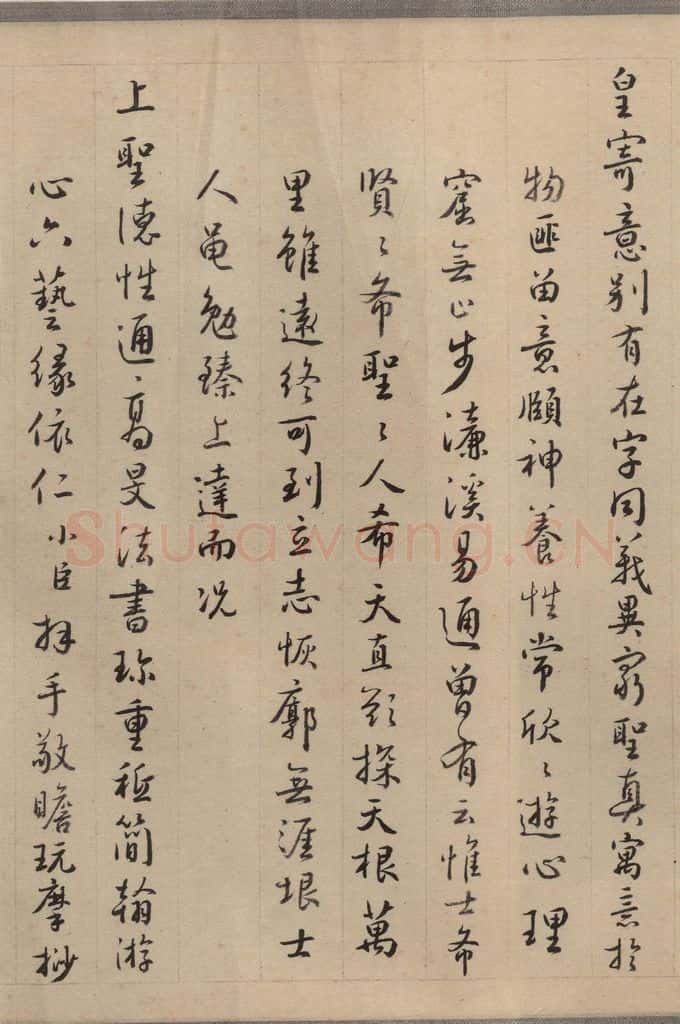 皇寄意别有在字同義異窮聖真寓意於
物匪留意頤神養性常欣々遊心理
窟無止步濂溪易通曾有云惟士希
賢々希聖々人希天直欲探天根萬
里雖遠終可到立志恢廓無涯垠士
人黽勉臻上達而况
上聖德性通高旻法書珍重祗簡翰游
心六藝緣依仁小臣拜手敬瞻玩摩挱
Shufawang.CN